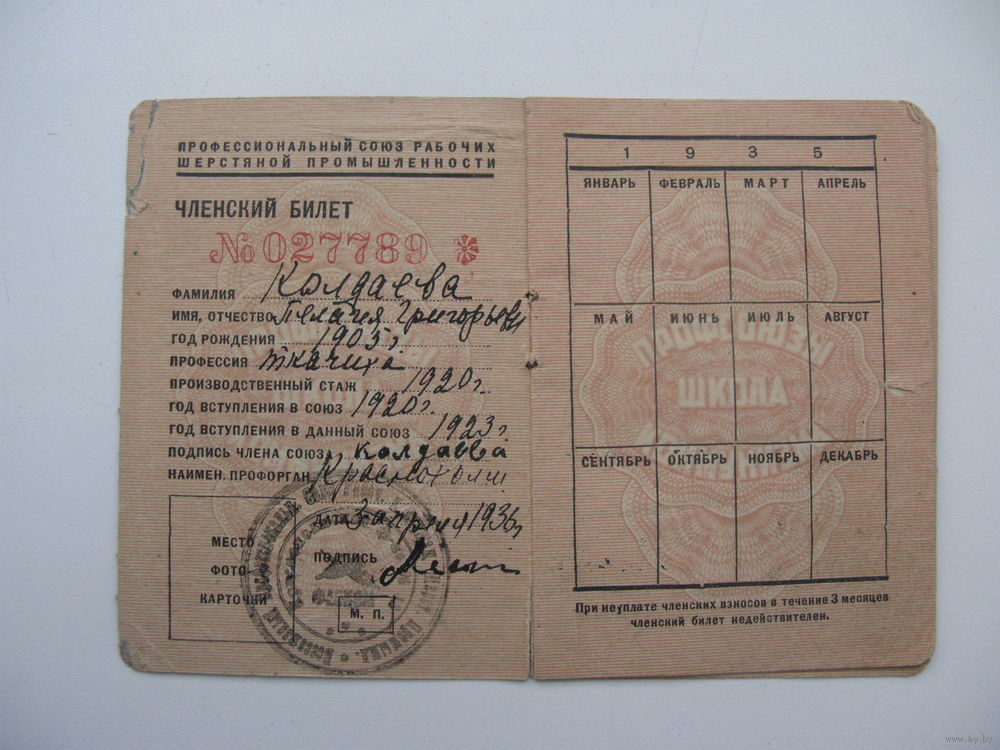 ПРОФЕССИОНАЛЬНЫЙ СОЮЗ РАБОЧИХ
ШЕРСТЯНОЙ ПРОМЫШЛЕННОСТИ
ЧЛЕНСКИЙ БИЛЕТ
№ 027789
ФАМИЛИЯ Колдаева
ИМЯ, ОТЧЕСТВО Пелагия Григорьевн
ГОД РОЖДЕНИЯ 1905 г.
ПРОФЕССИЯ ткачиха
ПРОИЗВОДСТВЕННЫЙ СТАЖ 1920 г.
ГОД ВСТУПЛЕНИЯ В СОЮЗ 1920 г.
ГОД ВСТУПЛЕНИЯ В ДАННЫЙ СОЮЗ 1923 г.
ПОДПИСЬ ЧЛЕНА СОЮЗА Колдаева
НАИМЕН. ПРОФОРГАН. Краснохолм
ДАТА 3 апреля 1936 г.
МЕСТО
ФОТО
КАРТОЧКИ
ПОДПИСЬ
М. П.
1 9 3 5
ЯНВАРЬ ФЕВРАЛЬ МАРТ АПРЕЛЬ
МАЙ ИЮНЬ ИЮЛЬ АВГУСТ
ПРОФСОЮЗЫ
ШКОЛА
СЕНТЯБРЬ ОКТЯБРЬ НОЯБРЬ ДЕКАБРЬ
При неуплате членских взносов в течение 3 месяцев
членский билет недействителен.
www.ay.by